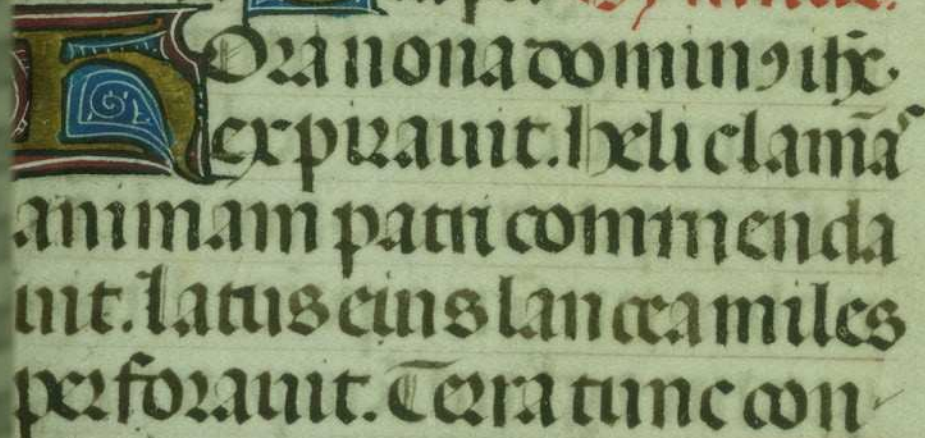 Hora nona dominꝰ ihc̄
expirauit. heli clamās
animam patri commenda
uit. Latus eius lancea miles
perforauit. Terra tunc con-